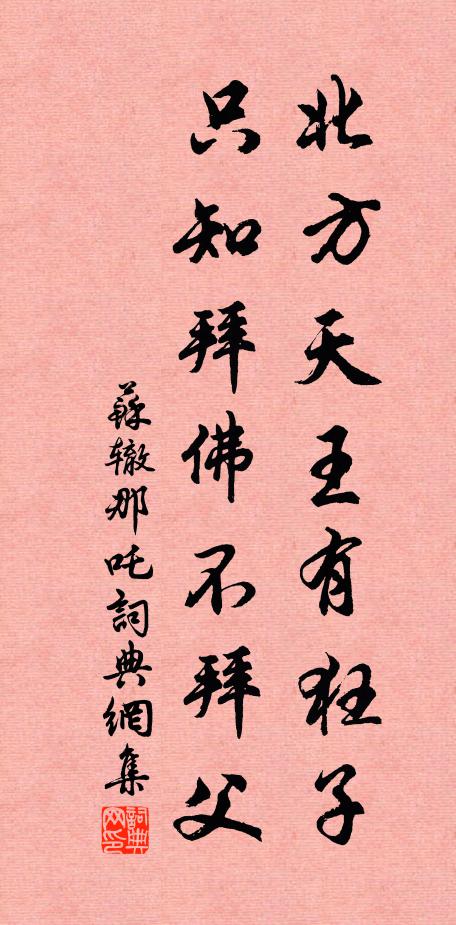 北方天王有狂子
只知拜佛不拜父
蘇辙那吒詞典網集
詞典网印